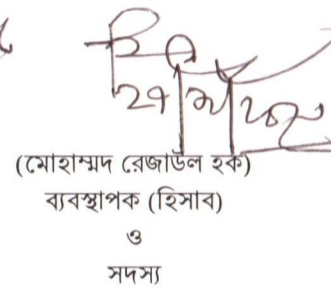 (মোহাম্মদ রেজাউল হক)
ব্যবস্থাপক (হিসাব)
ও
সদস্য